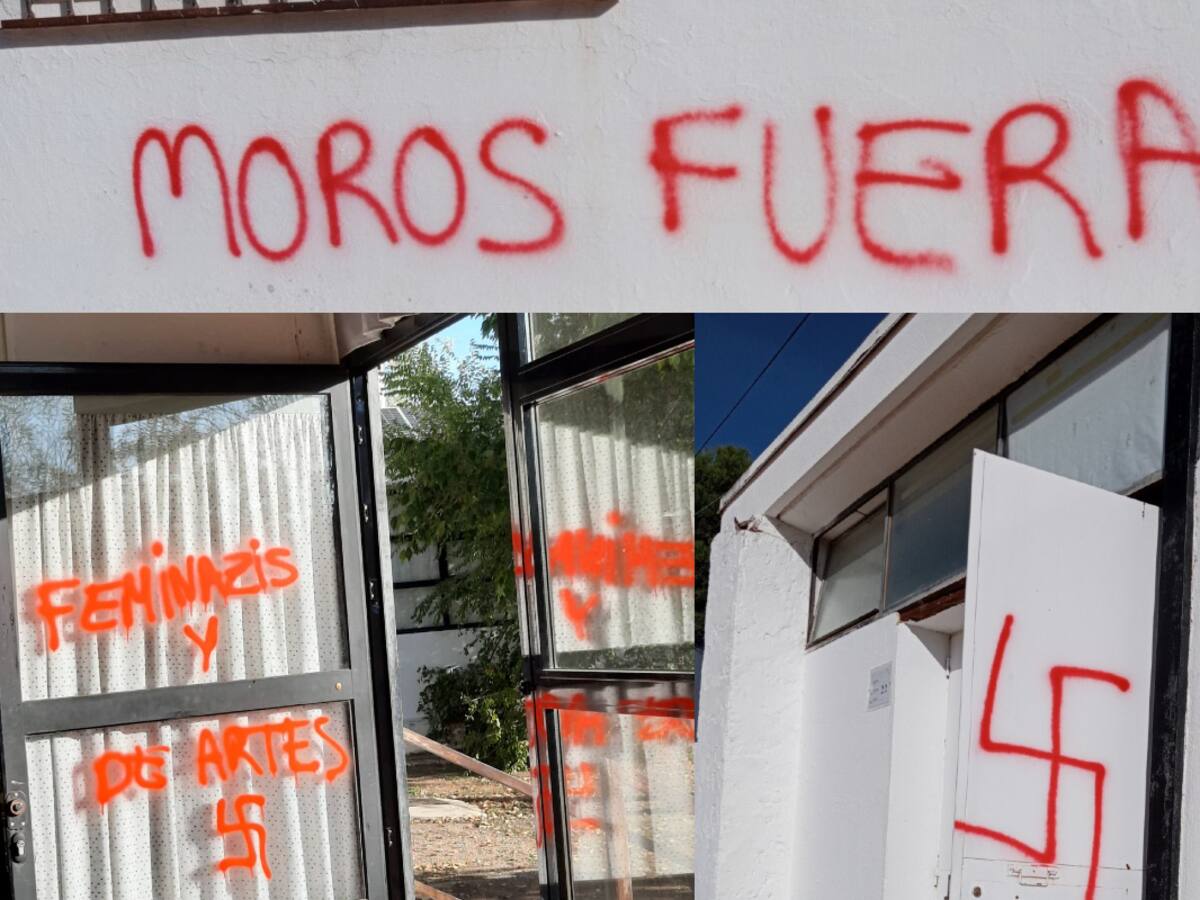 MOROS FUERA
FEMINAZIS
Y
Y
DE ARTES
22